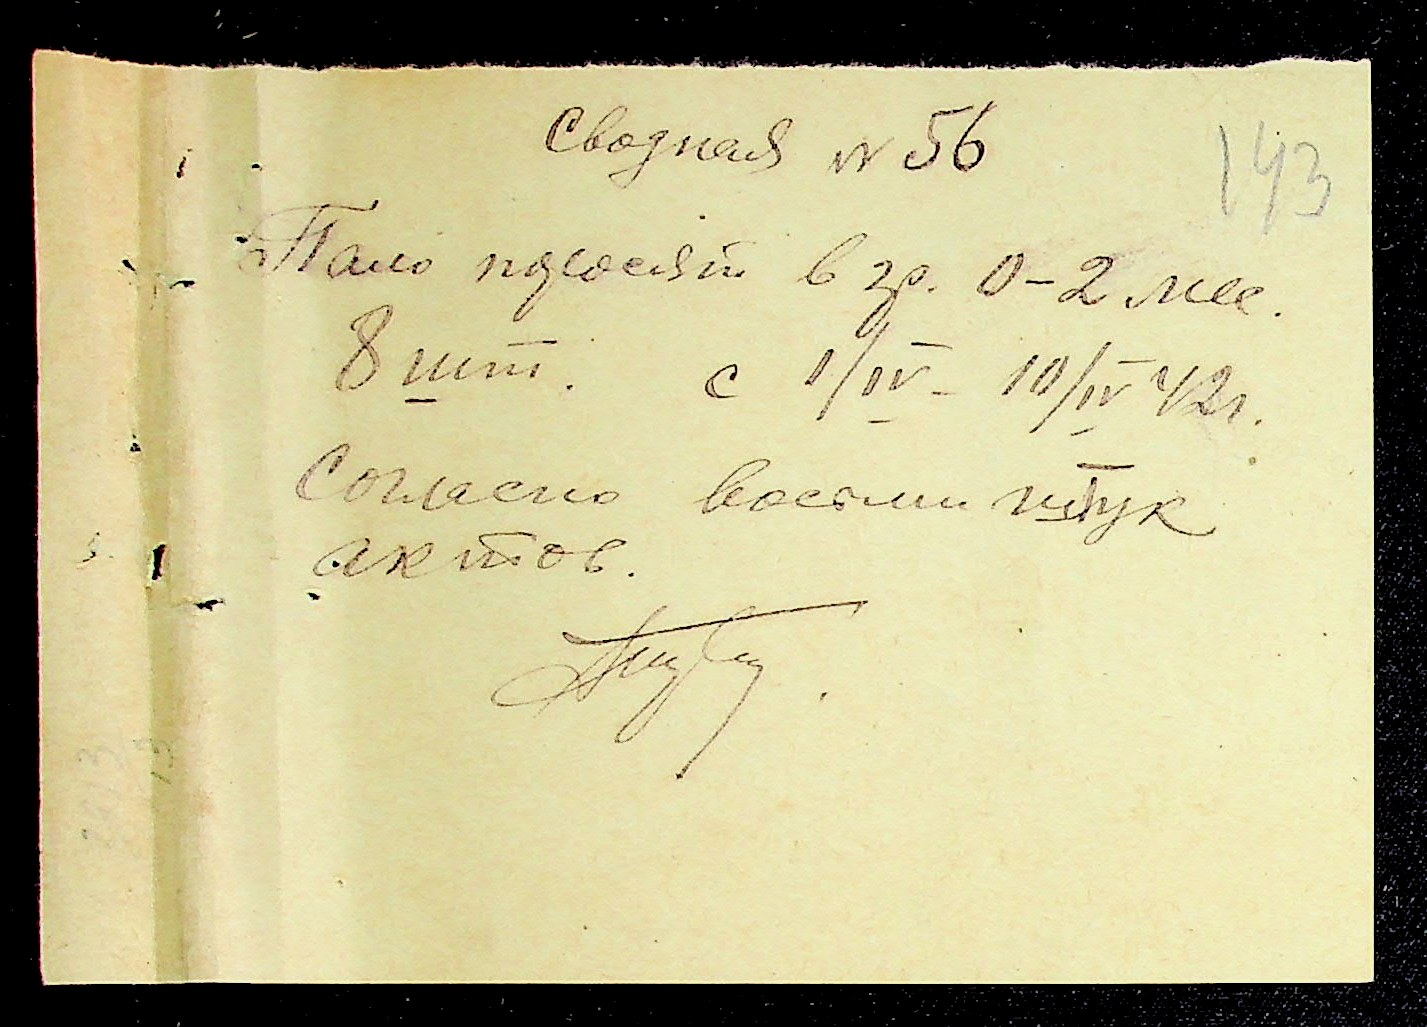 Сводная № 56
143
Пало поросят в гр. 0-2 мес.
8 шт. с 1/IV - 10/IV 42г.
Согласно восьми штук
актов.